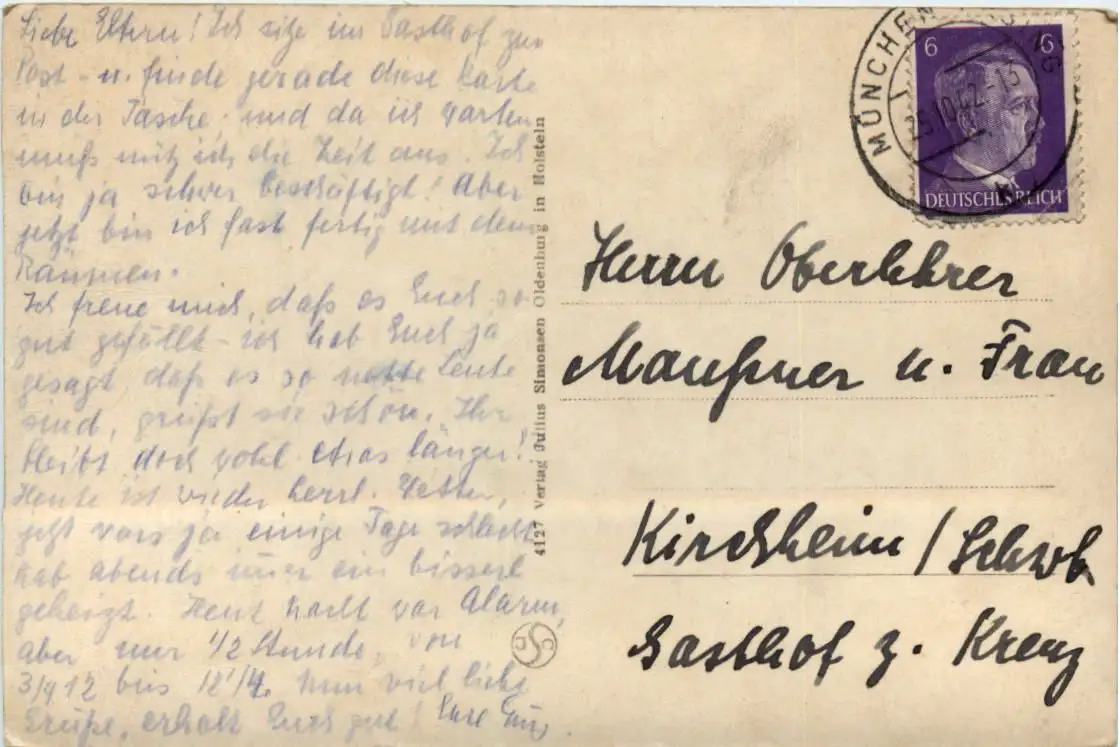 Liebe Eltern! Ich sitze im Gasthof zur
Post - u. finde gerade diese Karte
in der Tasche, und da ich warten
muß nütz ich die Zeit aus. Ich
bin ja schwer beschäftigt! Aber
jetzt bin ich fast fertig mit dem
Räumen.
Ich freue mich, daß es Euch so
gut gefällt - ich hab Euch ja
gesagt, daß es so nette Leute
sind, grüßt sie schön. Ihr
bleibt doch wohl etwas länger!
Heute ist wieder herrl. Wetter,
jetzt wars ja einige Tage schlecht
hab abends immer ein bisserl
geheizt. Heut nacht war Alarm,
aber nur 1/2 Stunde, von
3/4 12 bis 12 1/4. Nun viel liebe
Grüße, erholt Euch gut! Eure
4127 Verlag Julius Simonsen Oldenburg in Holstein
MÜNCHEN
25.10.42.-13
6 6
DEUTSCHES REICH
Herrn Oberlehrer
Maußner u. Frau
Kirchheim / Schwb
Gasthof z. Kreuz